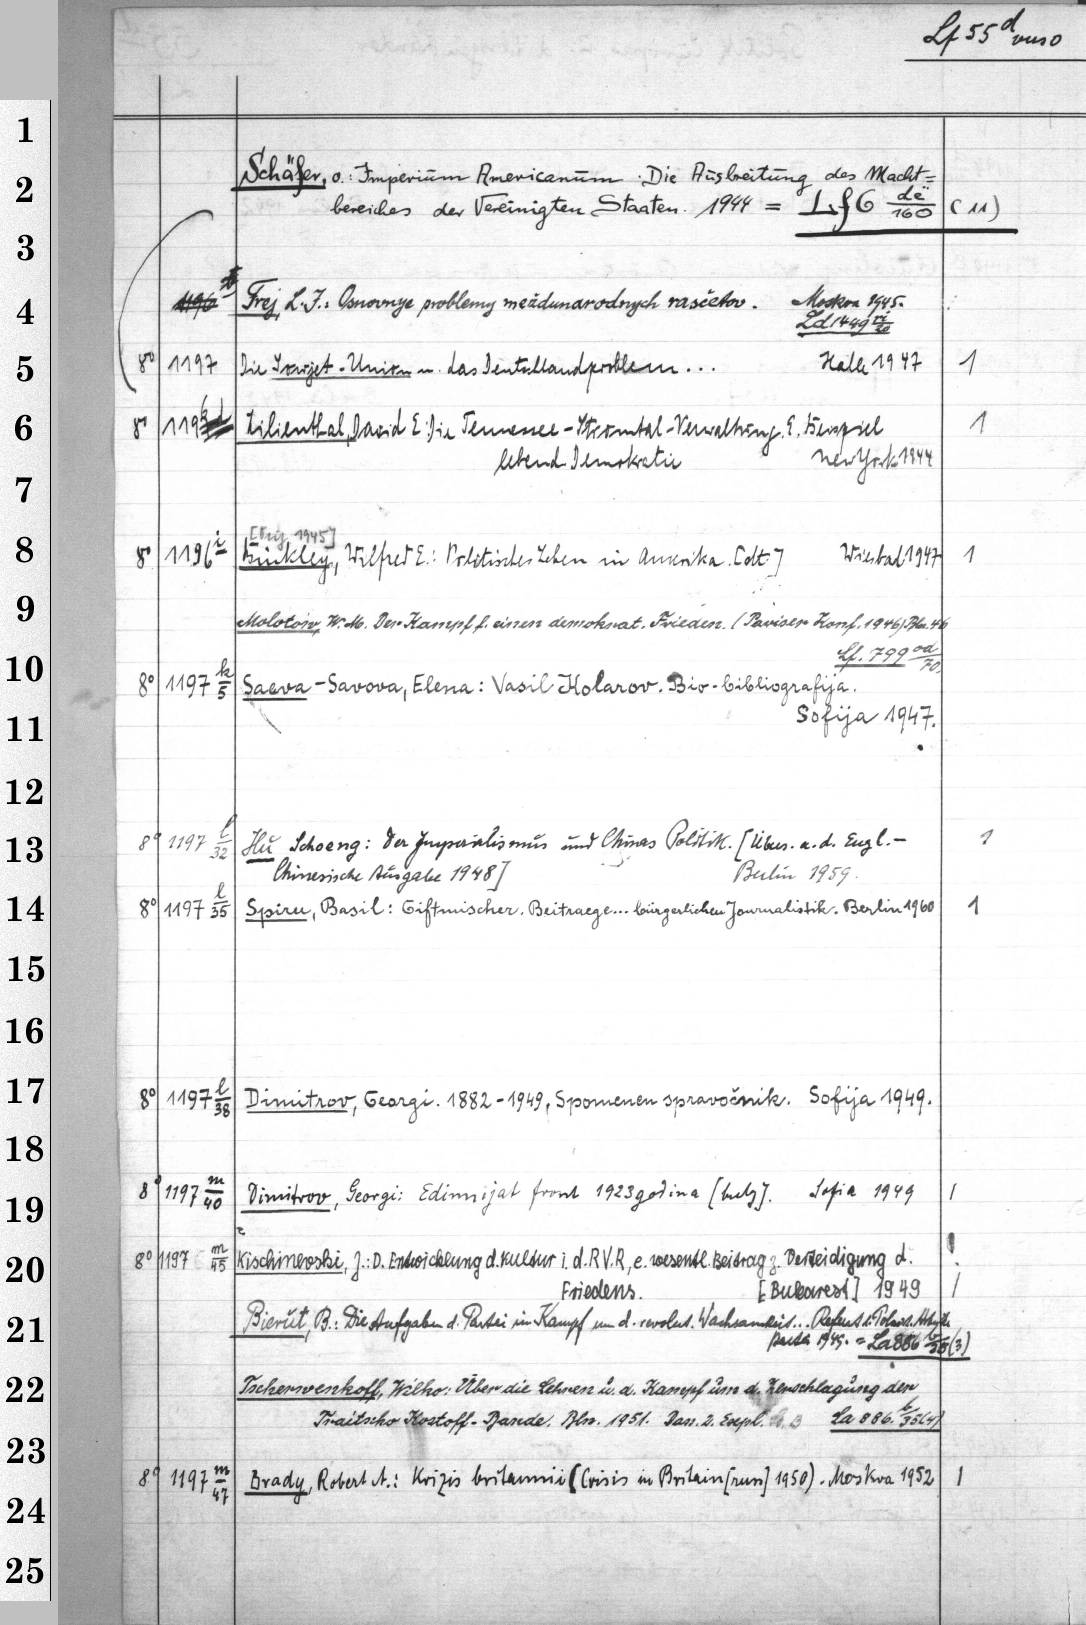 Lf 55 d
verso
1
2
3
4
5
6
7
8
9
10
11
12
13
14
15
16
17
18
19
20
21
22
23
24
25
Schäfer, O.: Imperium Americanum. Die Ausbreitung des Macht=
bereiches der Vereinigten Staaten. 1944 = Lf 6 dë/160 (11)
1196 Frej, L. I.: Osnovnye problemy meždunarodnych rasčetov. Moskva 1945.
Ld 1449
8° 1197 Die Sowjet-Union u. das Deutschlandproblem... Halle 1947 1
8° Lilienthal, David E: Die Tennessee-Stromtal-Verwaltung. E. Beispiel 1
lebend. Demokratie New York 1944
[Orig. 1945]
8° 1196 i Binkley, Wilfred E.: Politisches Leben in Amerika. [dt.] Wiesbad 1947 1
Molotow, W. M. Der Kampf f. einen demokrat. Frieden. (Pariser Konf. 1946) Bln. 46
Lf. 799 od/70
8° 1197 k/5 Saeva-Savova, Elena: Vasil Kolarov. Bio-bibliografija.
Sofija 1947.
8° 1197 l/32 Hu Schoeng: Der Imperialismus und Chinas Politik. [Übers. a. d. Engl.- 1
Chinesische Ausgabe 1948] Berlin 1959.
8° 1197 l/35 Spiru, Basil: Giftmischer. Beitraege... bürgerlichen Journalistik. Berlin 1960 1
8° 1197 l/38 Dimitrov, Georgi. 1882-1949, Spomenen spravočnik. Sofija 1949.
8° 1197 m/40 Dimitrov, Georgi: Edinnijat front 1923 godina [bulg]. Sofia 1949 1
8° 1197 m/45 Kischinevski, J.: D. Entwicklung d. Kultur i. d. RVR, e. wesentl. Beitrag z. Verteidigung d.
Friedens. [Bukarest] 1949 1
Bierut, B.: Die Aufgaben d. Partei im Kampf um d. revolut. Wachsamkeit... Referat
1949. = La 886 (3)
Tscherwenkoff, Wilko: Über die Lehren u. d. Kampf um d. Zerschlagung der
Traitscho Kostoff-Bande. Bln. 1951. Dass. 2. Expl. La 886.
8° 1197 m/47 Brady, Robert A.: Krizis britannii (Crisis in Britain [russ] 1950). Moskva 1952 1